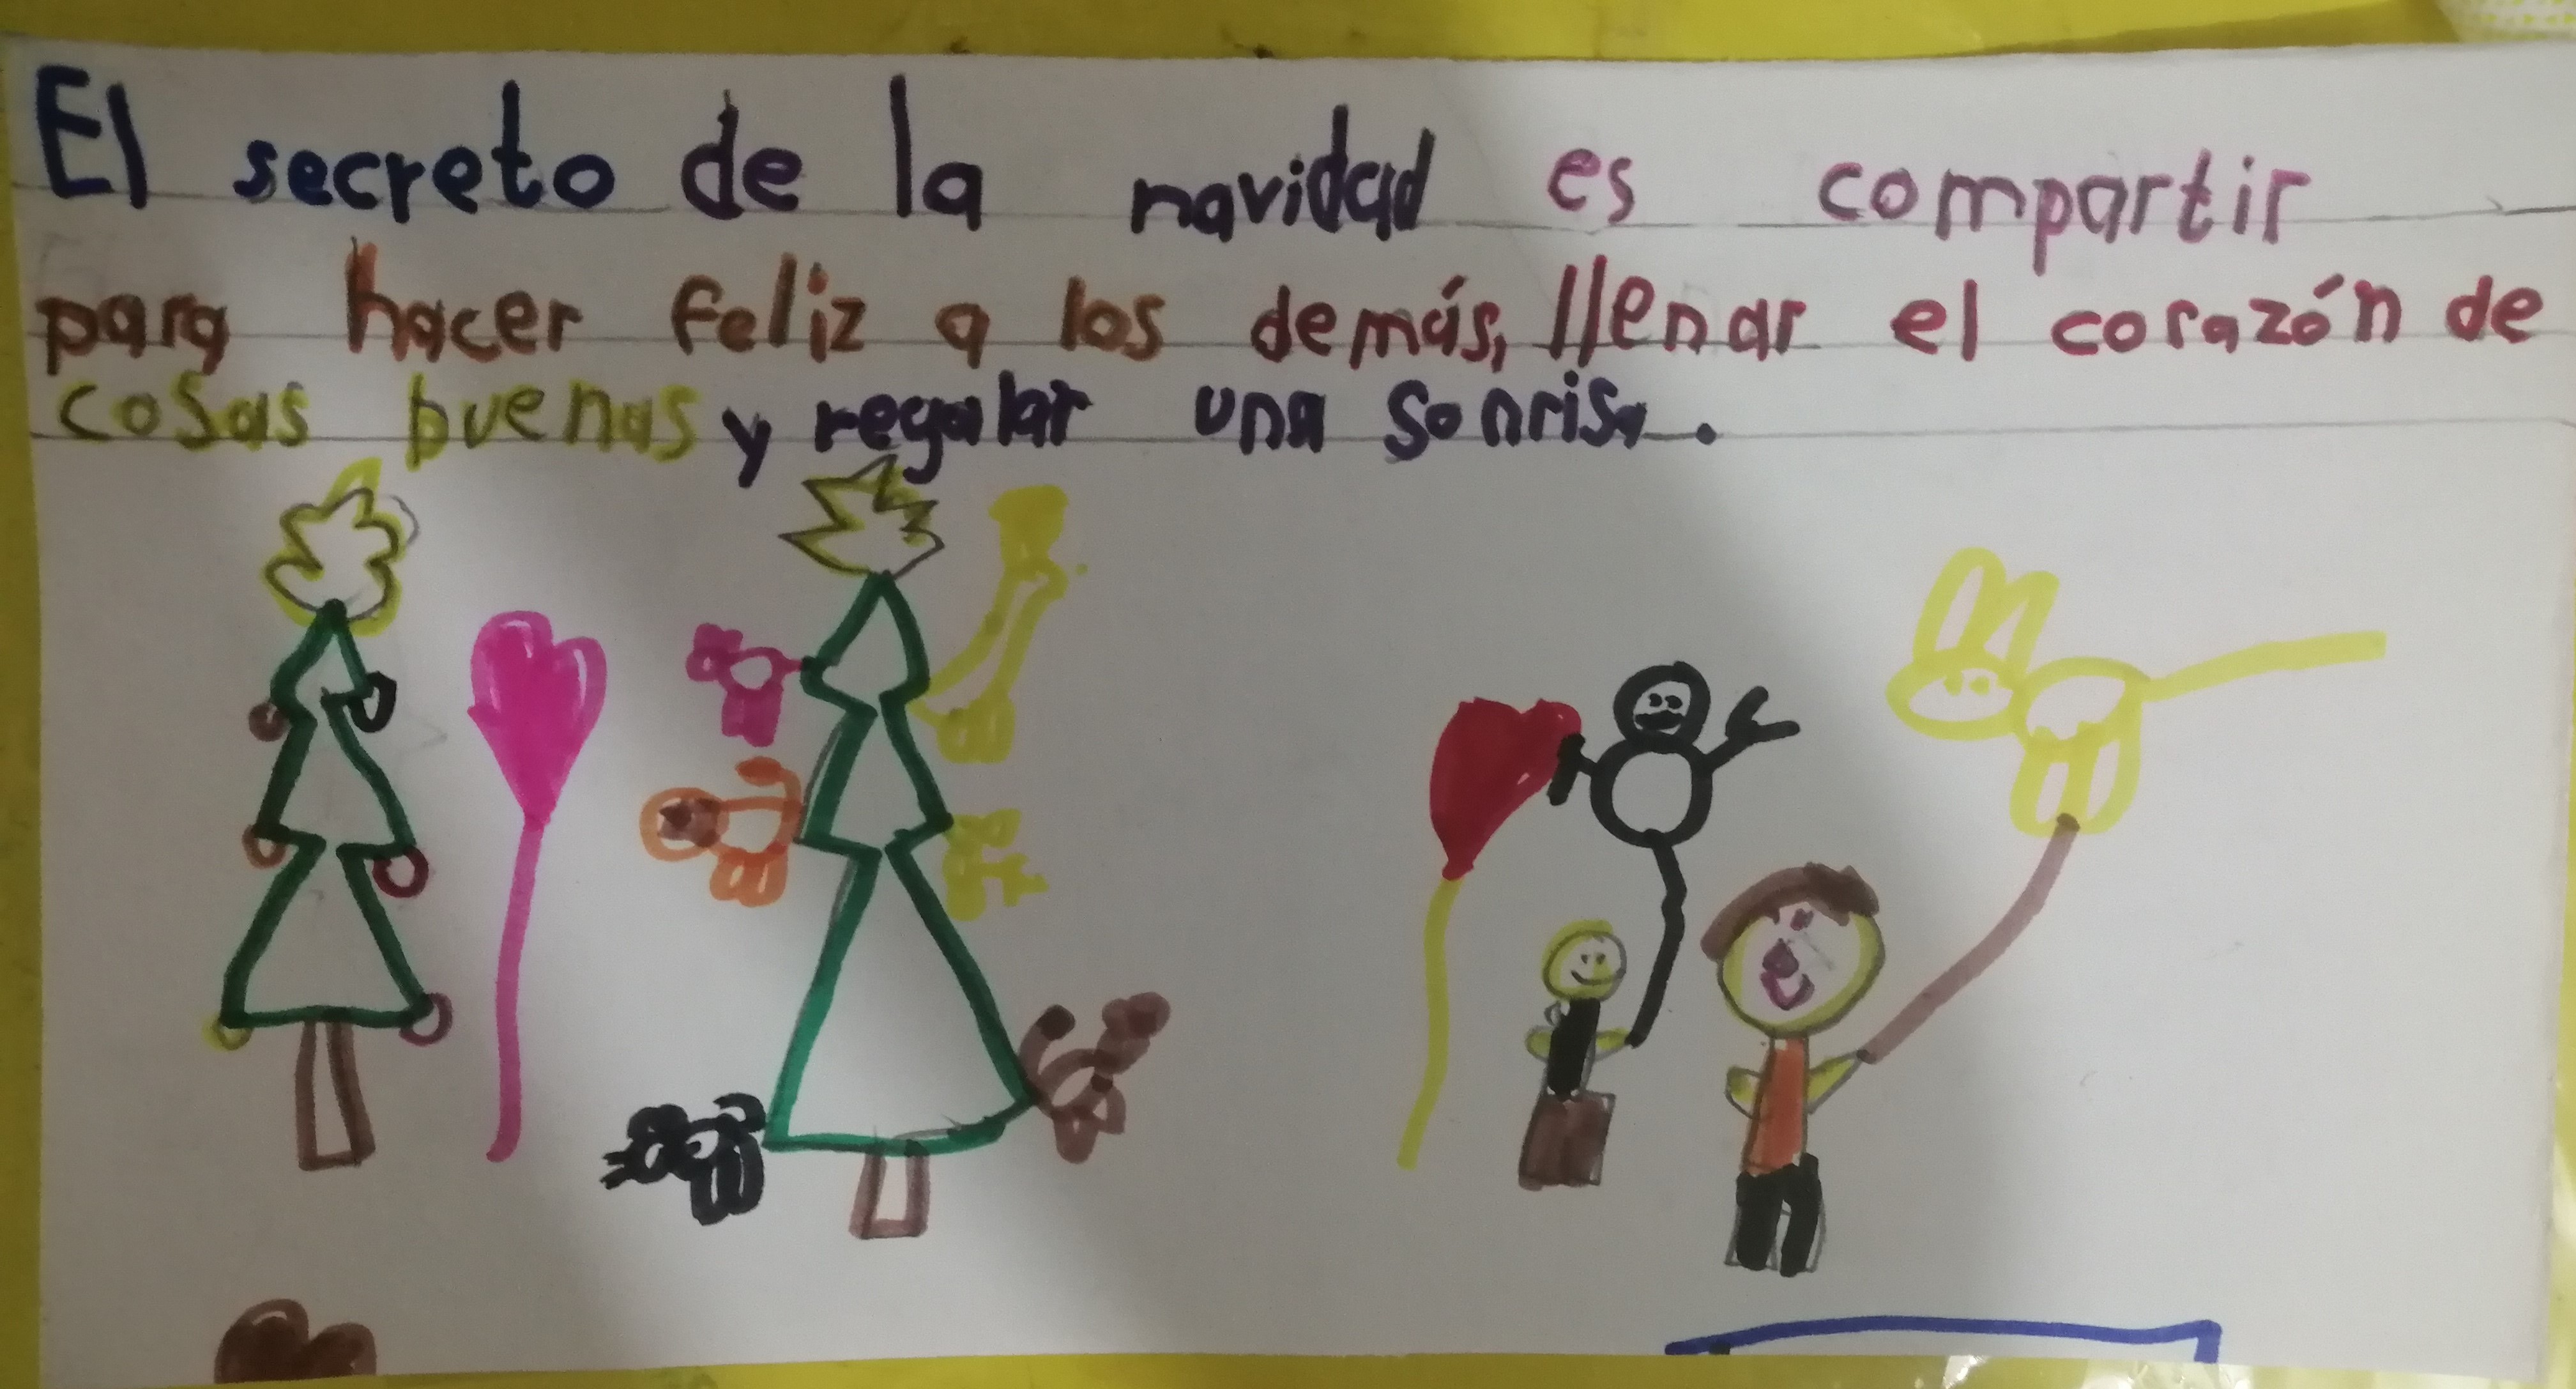 El secreto de la navidad es compartir
para hacer feliz a los demás, llenar el corazón de
cosas buenas y regalar una sonrisa.